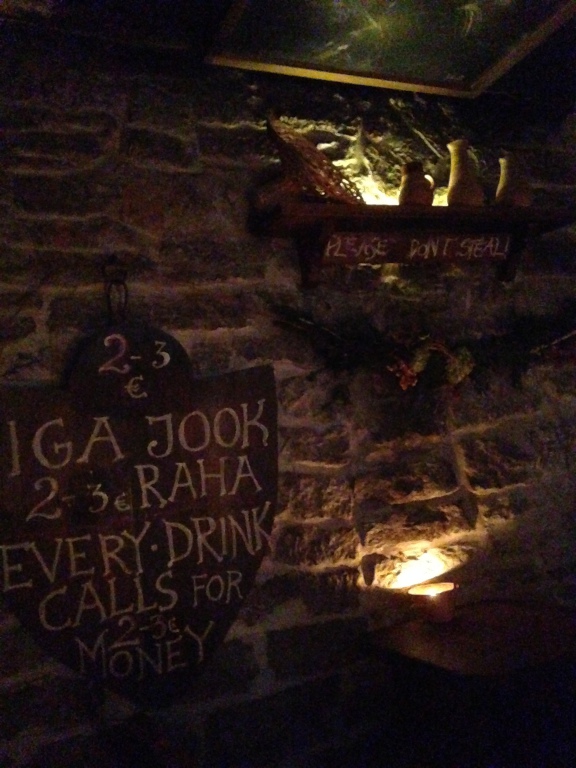 PLEASE DON'T STEAL!
2-3
€
IGA JOOK
2-3€ RAHA
EVERY·DRINK
CALLS FOR
2-3€
MONEY